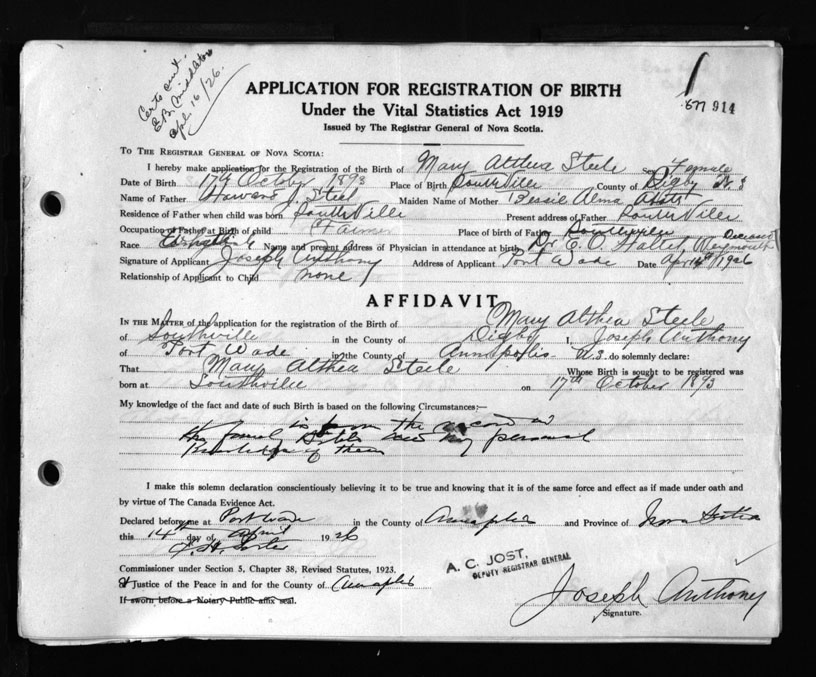 Certs sent
Apl. 16/26.
APPLICATION FOR REGISTRATION OF BIRTH
914
Under the Vital Statistics Act 1919
Issued by The Registrar General of Nova Scotia.
To The Registrar General of Nova Scotia:
I hereby make application for the Registration of the Birth of Mary Althea Steele Sex Female
Date of Birth 17th October 1893 Place of Birth Southville County of Digby N.S
Name of Father Howard J. Steel Maiden Name of Mother Bessie Alma
Residence of Father when child was born Southville Present address of Father Southville
Occupation of Father at Birth of child Farmer Place of birth of Father Southville Deceased
Race Name and present address of Physician in attendance at birth Dr E. O. Hallet Weymouth
Signature of Applicant Joseph Anthony Address of Applicant Port Wade Date April 14th 1926
Relationship of Applicant to Child none
AFFIDAVIT
In the Matter of the application for the registration of the Birth of Mary Althea Steele
of Southville in the County of Digby I, Joseph Anthony
of Port Wade in the County of Annapolis N.S. do solemnly declare:
That Mary Althea Steele Whose Birth is sought to be registered was
born at Southville on 17th October 1893
My knowledge of the fact and date of such Birth is based on the following Circumstances:—
is from the record in
the family Bible and my personal
Knowledge of them
I make this solemn declaration conscientiously believing it to be true and knowing that it is of the same force and effect as if made under oath and
by virtue of The Canada Evidence Act.
Declared before me at Port Wade in the County of Annapolis and Province of Nova Scotia
this 14th day of April 1926
Commissioner under Section 5, Chapter 38, Revised Statutes, 1923.
A. C. JOST,
DEPUTY REGISTRAR GENERAL
A Justice of the Peace in and for the County of Annapolis
If sworn before a Notary Public affix seal.
Joseph Anthony
Signature.